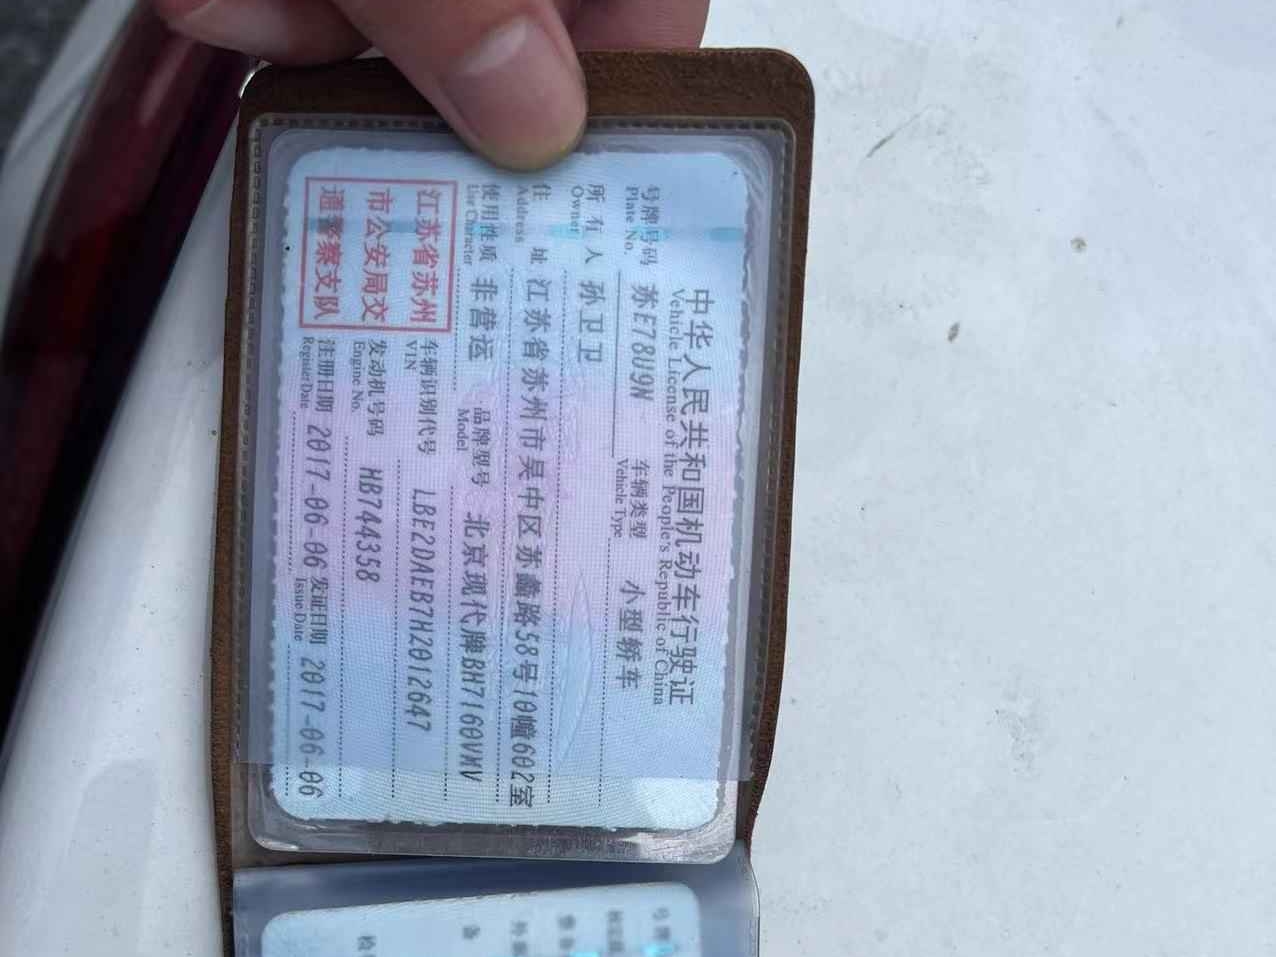 中华人民共和国机动车行驶证
Vehicle License of the People's Republic of China
号牌号码 苏E78U9N 车辆类型 小型轿车
Plate No. Vehicle Type
所有人 孙卫卫
Owner
住址 江苏省苏州市吴中区苏蠡路58号10幢602室
Address
使用性质 非营运 品牌型号 北京现代牌BH7160VMV
Use Character Model
江苏省苏州
市公安局交
通警察支队
车辆识别代号 LBE2DAEB7H2012647
VIN
发动机号码 HB744358
Engine No.
注册日期 2017-06-06 发证日期 2017-06-06
Register Date Issue Date
号牌